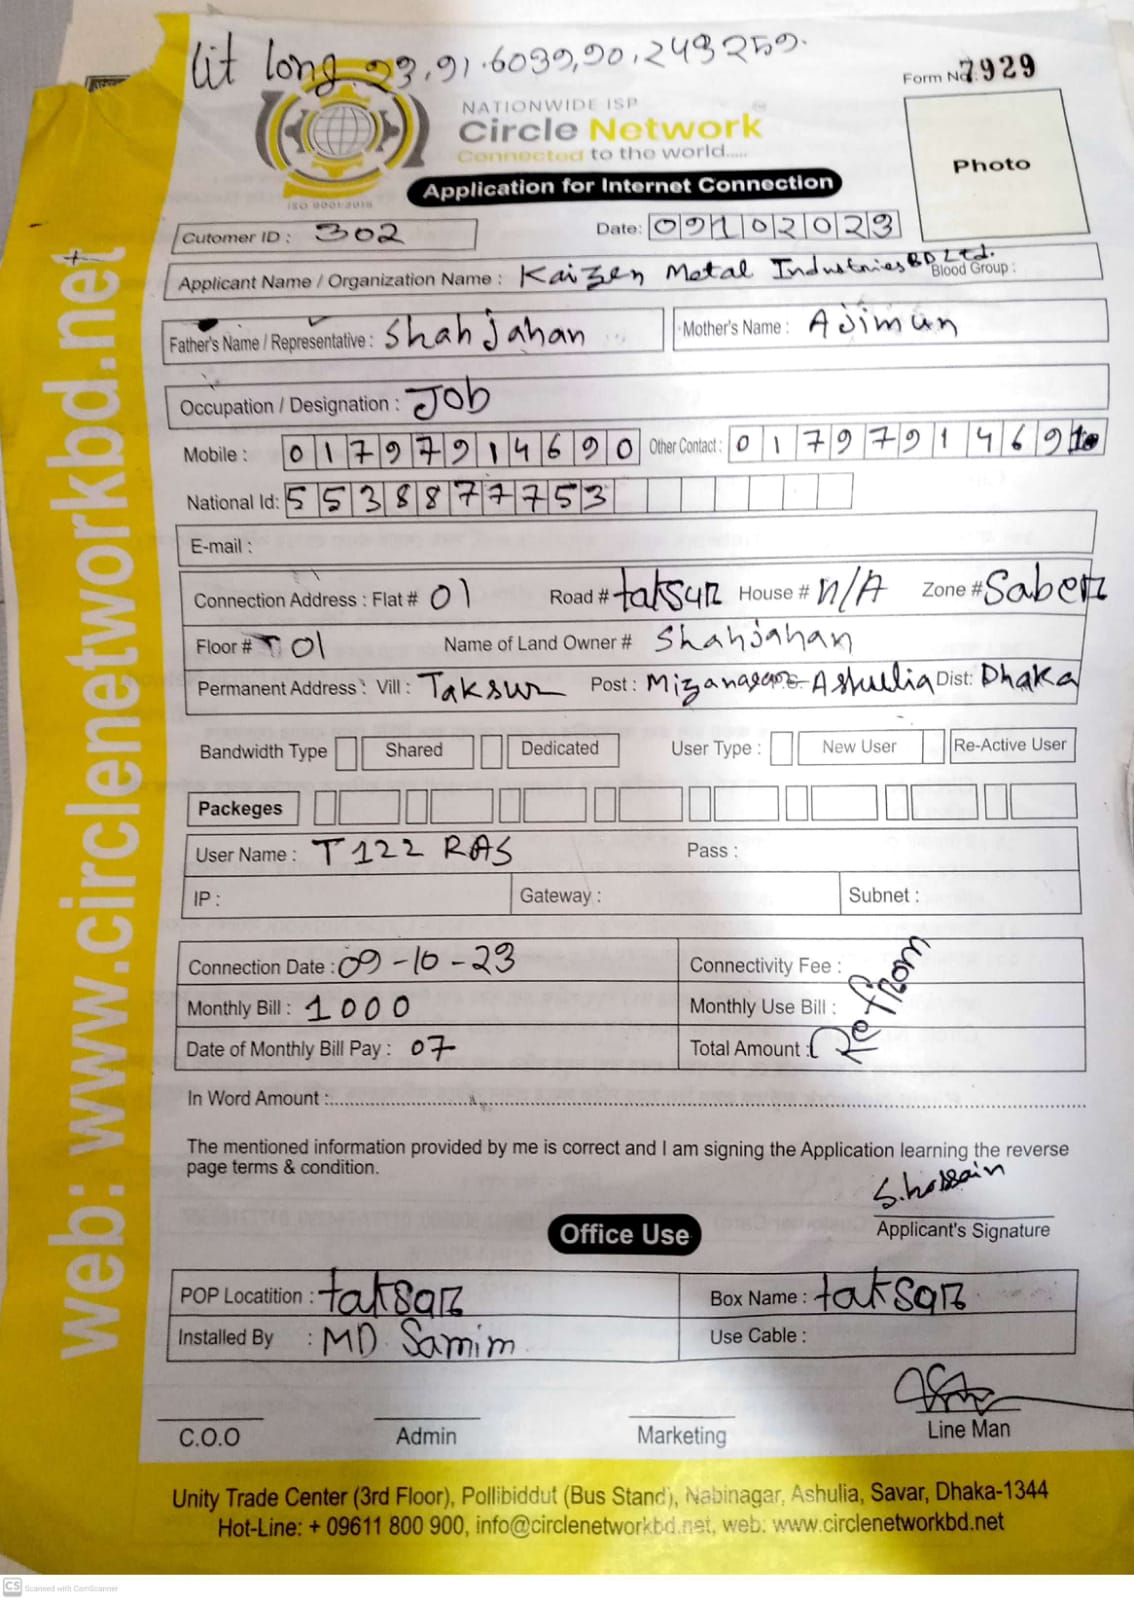 lit long. 23.91.6039,90.243259.
Form No: 7929
NATIONWIDE ISP
Circle Network
Connected to the world.....
ISO 9001:2015
Photo
Application for Internet Connection
Cutomer ID : 302
Date: 09102023
Applicant Name / Organization Name : Kaizen Metal Industries BD Ltd.
Blood Group :
Father's Name / Representative : Shahjahan
Mother's Name : Ajiman
Occupation / Designation : Job
Mobile : 01797914690
Other Contact : 01797914691
National Id: 5538877753
E-mail :
Connection Address : Flat # 01 Road # taksur House # n/A Zone # Saber
Floor # 01 Name of Land Owner # Shahjahan
Permanent Address : Vill : Taksur Post : Ashulia Dist: Dhaka
Bandwidth Type Shared Dedicated User Type : New User Re-Active User
Packeges
User Name : T122 RAS Pass :
IP : Gateway : Subnet :
Connection Date : 09-10-23 Connectivity Fee :
Monthly Bill : 1000 Monthly Use Bill :
Date of Monthly Bill Pay : 07 Total Amount :
In Word Amount :
The mentioned information provided by me is correct and I am signing the Application learning the reverse
page terms & condition.
S.hossain
Applicant's Signature
Office Use
POP Locatition : taksar Box Name : taksar
Installed By : MD Samim Use Cable :
C.O.O Admin Marketing Line Man
Unity Trade Center (3rd Floor), Pollibiddut (Bus Stand), Nabinagar, Ashulia, Savar, Dhaka-1344
Hot-Line: + 09611 800 900, info@circlenetworkbd.net, web: www.circlenetworkbd.net
web: www.circlenetworkbd.net
CS Scanned with CamScanner